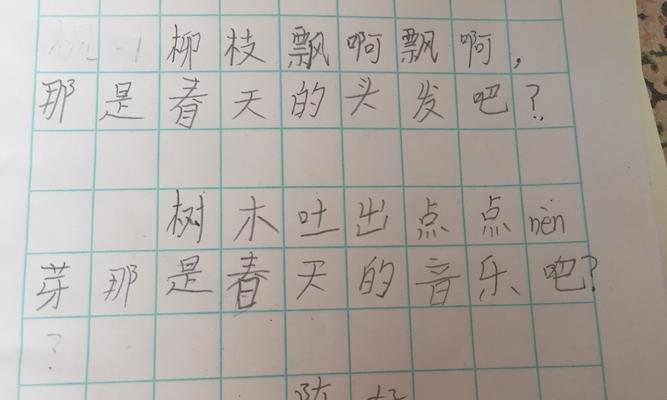 柳枝飘啊飘啊，
那是春天的头发吧？
树木吐出点点nèn
芽那是春天的音乐吧？
？